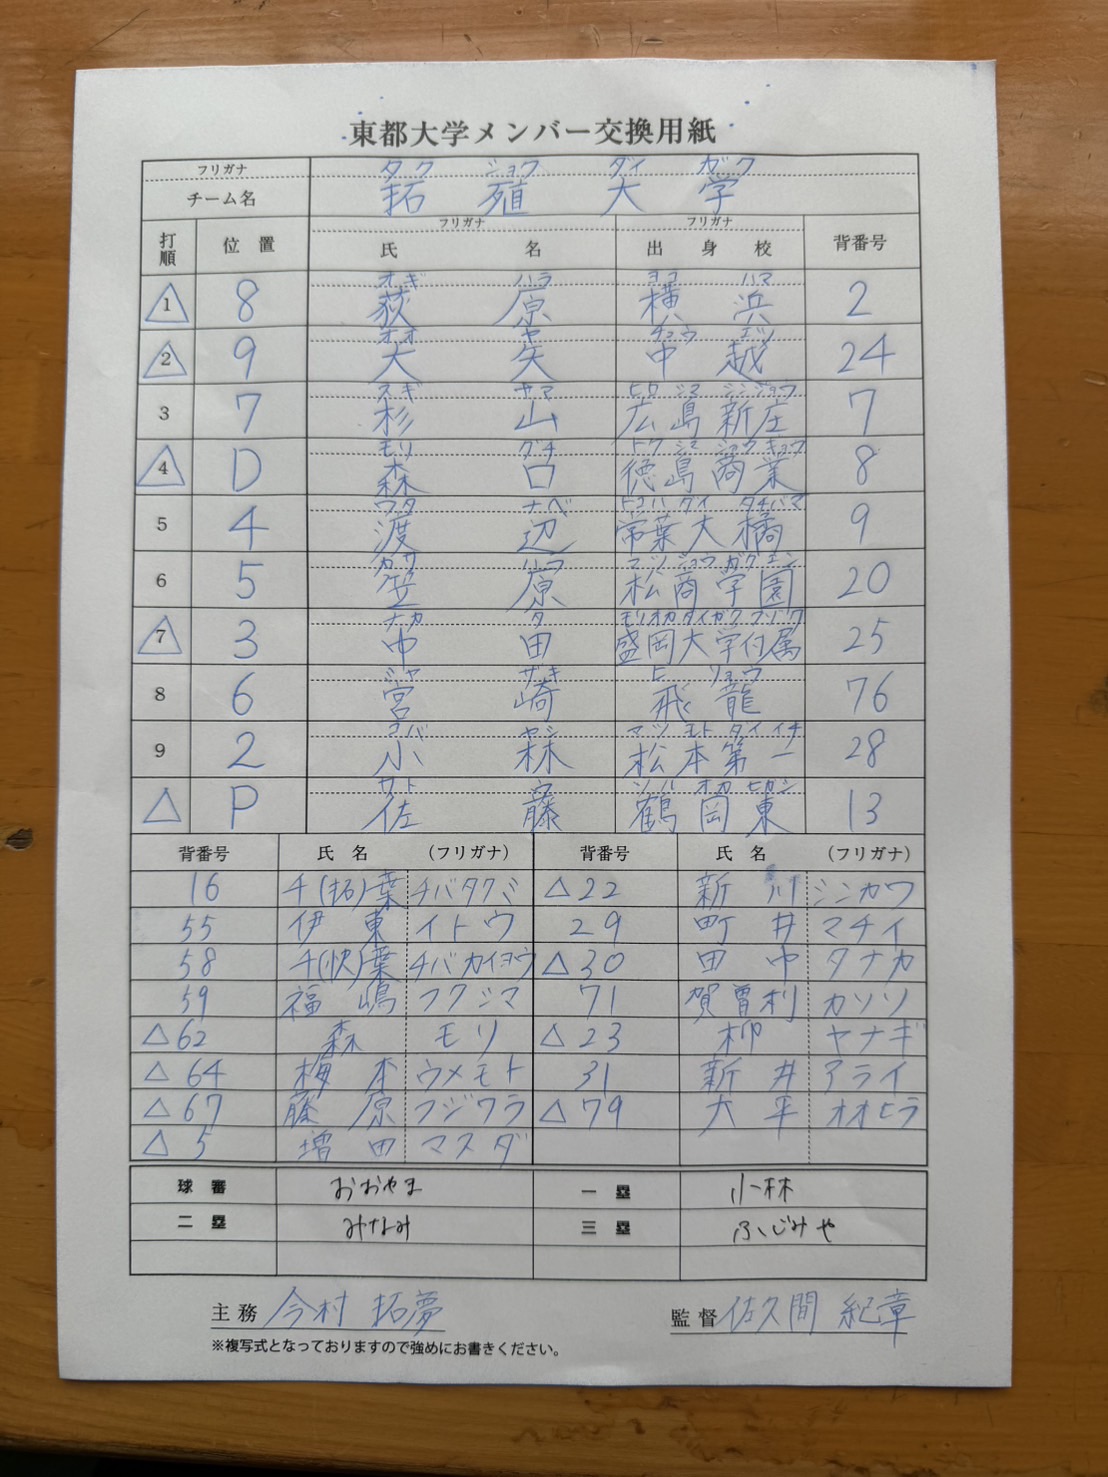 東都大学メンバー交換用紙
フリガナ タク ショク ダイ ガク
チーム名 拓 殖 大 学
フリガナ フリガナ
打順 位置 氏 名 出 身 校 背番号
オギ ハラ ヨコ ハマ
△1 8 荻 原 横 浜 2
オオ ヤ チュウ エツ
△2 9 大 矢 中 越 24
スギ ヤマ ヒロ シマ シンジョウ
3 7 杉 山 広 島 新 庄 7
モリ グチ トク シマ ショウ ギョウ
△4 D 森 口 徳 島 商 業 8
ワタ ナベ トコハ ダイ タチバナ
5 4 渡 辺 常 葉 大 橘 9
カサ ハラ マツ ショウ ガク エン
6 5 笠 原 松 商 学 園 20
ナカ タ モリオカ ダイガク フゾク
△7 3 中 田 盛 岡 大 学 付 属 25
ミヤ ザキ ヒ リュウ
8 6 宮 崎 飛 龍 76
コバ ヤシ マツ モト ダイ イチ
9 2 小 林 松 本 第 一 28
サト ウ ツル オカ ヒガシ
△ P 佐 藤 鶴 岡 東 13
背番号 氏 名 (フリガナ) 背番号 氏 名 (フリガナ)
16 千(拓)葉 チバタクミ △22 新 川 シンカワ
55 伊 東 イトウ 29 町 井 マチイ
58 千(快)葉 チバカイヨウ △30 田 中 タナカ
59 福 嶋 フクシマ 71 賀曽利 カソリ
△62 森 モリ △23 柳 ヤナギ
△64 梅 本 ウメモト 31 新 井 アライ
△67 藤 原 フジワラ △79 大 平 オオヒラ
△5 増 田 マスダ
球 審 おおやま 一 塁 小林
二 塁 みなみ 三 塁 ふじみや
主 務 今村 拓夢 監 督 佐久間 紀章
※複写式となっておりますので強めにお書きください。